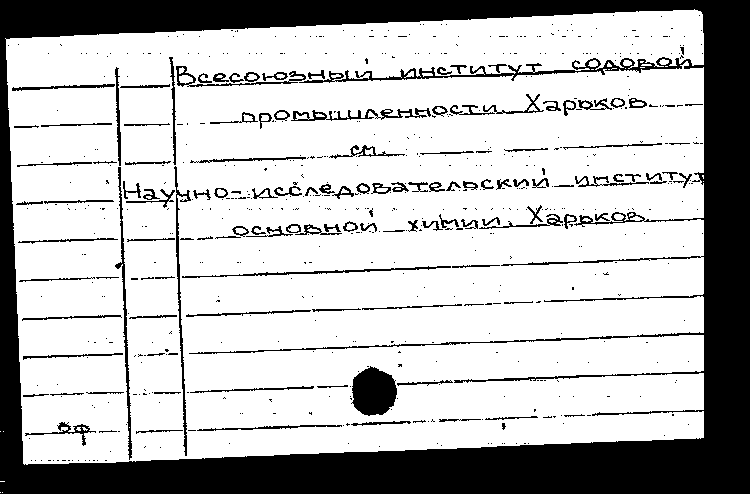 Всесоюзный институт содовой
промышленности. Харьков.
см.
Научно-исследовательский институт
основной химии. Харьков.
оф